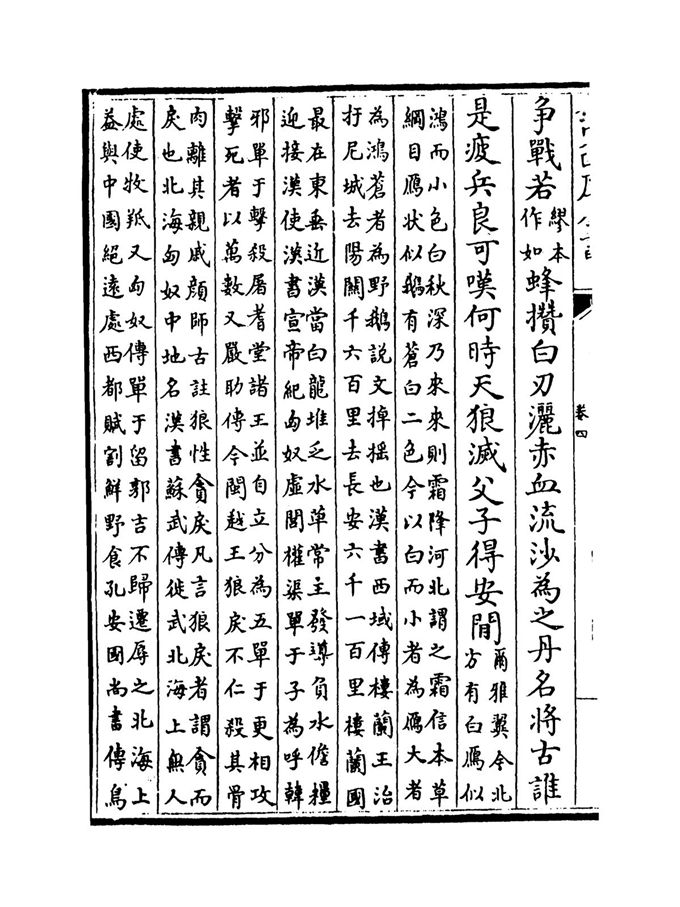 卷四
爭戰若繆本作如蜂攢白刃灑赤血流沙為之丹名將古誰
是疲兵良可嘆何時天狼滅父子得安閒爾雅翼今北
方有白鴈似
鴻而小色白秋深乃來來則霜降河北謂之霜信本草
綱目鴈狀似鵝有蒼白二色今以白而小者為鴈大者
為鴻蒼者為野鵝說文掉搖也漢書西域傳樓蘭王治
扜尼城去陽關千六百里去長安六千一百里樓蘭國
最在東垂近漢當白龍堆乏水草常主發導負水儋糧
迎接漢使漢書宣帝紀匈奴虛閭權渠單于子為呼韓
邪單于擊殺屠耆堂諸王並自立分為五單于更相攻
擊死者以萬數又嚴助傳今閩越王狼戾不仁殺其骨
肉離其親戚顔師古註狼性貪戾凡言狼戾者謂貪而
戾也北海匈奴中地名漢書蘇武傳徙武北海上無人
處使牧羝又匈奴傳單于留郭吉不歸遷辱之北海上
益與中國絕遠處西都賦割鮮野食孔安國尚書傳鳥